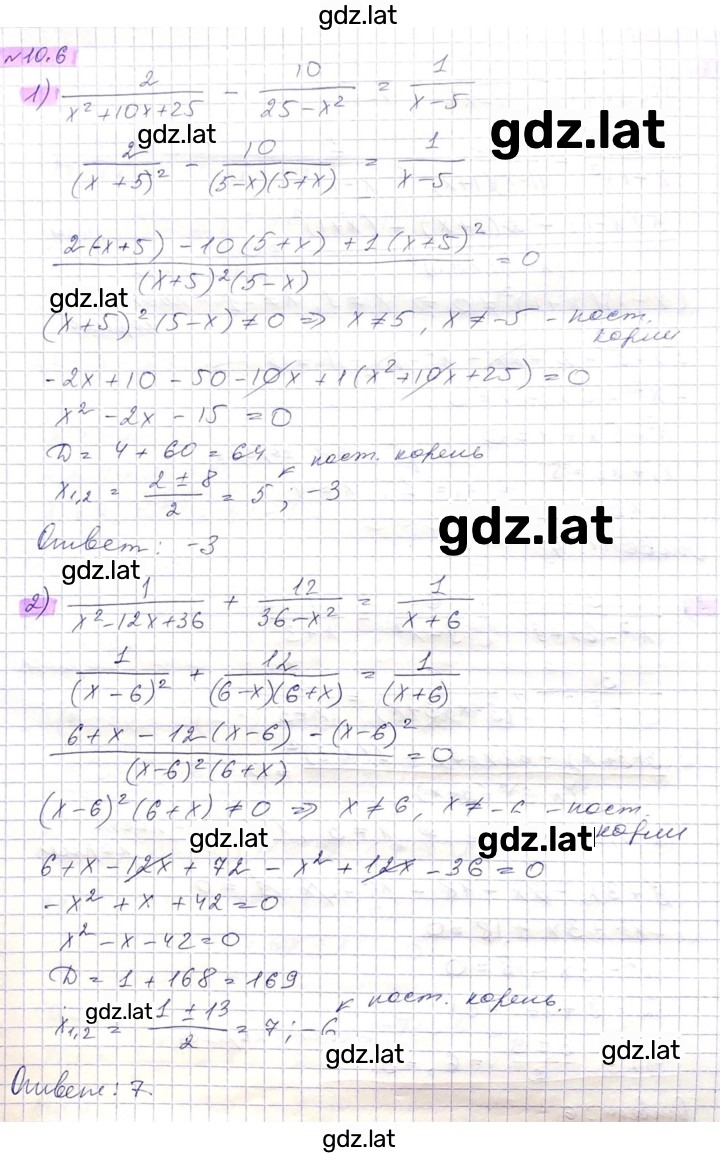 gdz.lat
№10.6
1) 2/(x²+10x+25) - 10/(25-x²) = 1/(x-5)
gdz.lat
gdz.lat
2/(x+5)² - 10/((5-x)(5+x)) = 1/(x-5)
(2(-x+5) - 10(5+x) + 1(x+5)²)/((x+5)²(5-x)) = 0
gdz.lat
(x+5)²(5-x) ≠ 0 => x≠5, x≠-5 - пост.
корни
-2x+10-50-10x+1(x²+10x+25)=0
x²-2x-15=0
D = 4+60=64
пост. корень
x₁,₂ = (2±8)/2 = 5; -3
gdz.lat
Ответ: -3
gdz.lat
2) 1/(x²-12x+36) + 12/(36-x²) = 1/(x+6)
1/(x-6)² + 12/((6-x)(6+x)) = 1/(x+6)
(6+x-12(x-6)-(x-6)²)/((x-6)²(6+x)) = 0
(x-6)²(6+x) ≠ 0 => x≠6, x≠-6 - пост.
корни
gdz.lat
gdz.lat
6+x-12x+72-x²+12x-36=0
-x²+x+42=0
x²-x-42=0
D=1+168=169
пост. корень.
gdz.lat
x₁,₂ = (1±13)/2 = 7; -6
gdz.lat
gdz.lat
Ответ: 7.
gdz.lat